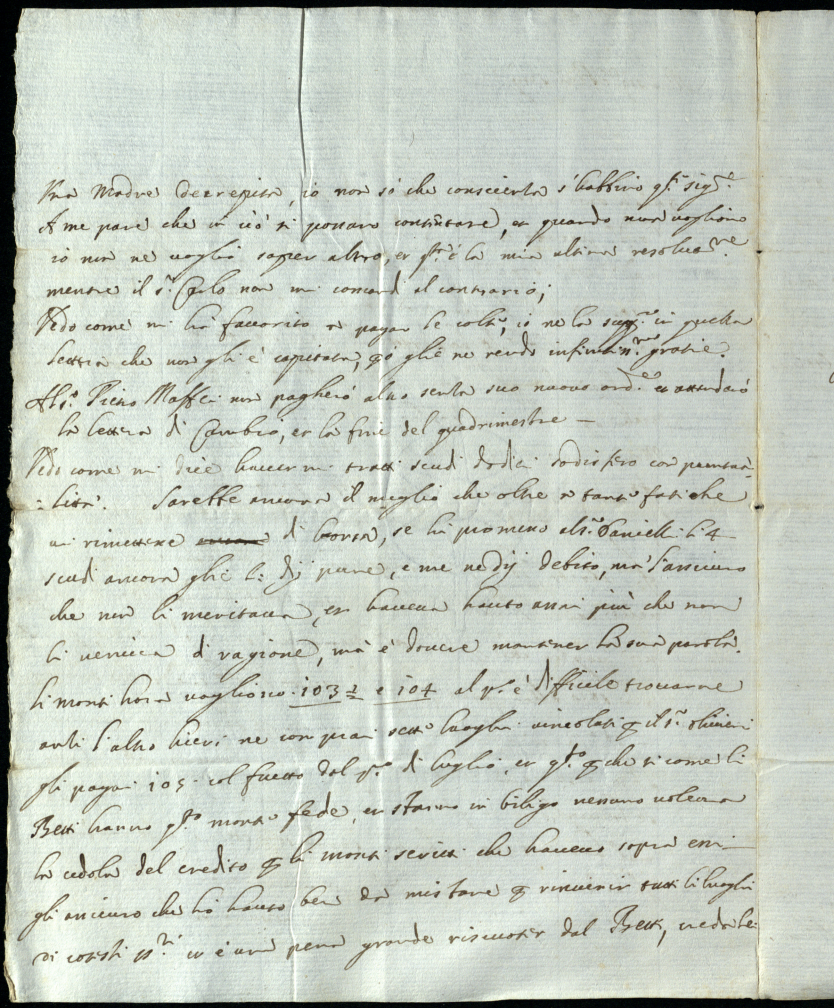 una Madre decrepita, io non sò che conscienza s'habbino q.ti sig.ri
A me pare che in ciò si possano contentare, et quando non vogliono
io non ne voglio saper altro, et q.ta è la mia ultima resolut.ne
mentre il s.r Carlo non mi comandi al contrario;
Vedo come mi hà favorito di pagar le colte, io ne la sup.co in quella
lettera che non gli è capitata, però gliè ne rendo infinitiss.me gratie.
Al s.r Pietro Maffei non pagherò altro senza suo nuovo ord.e et attenderò
la lettera di Cambio, et la fine del quadrimestre —
Vedo come mi dice havermi tratti scudi dodici sodisferò con pontua-
-lità. Sarebbe ancora il meglio che oltre à tante fatiche
vi rimettere di borsa, se hà promesso al s.r Danielli li 4
scudi ancora gliè li dij pure, e me ne dij debito, mà l'assicuro
che non li meritava, et haveva hauto assai più che non
li veniva di ragione, mà è dovere mantener la sua parola.
Li monti hora vagliono 103½ e 104 al p.te è difficile trovarne
anti l'altro hieri ne comprai sette luoghi vincolati per il s.r Olivieri
gli pagai 105 col frutto dal p.mo di luglio, et q.to perche si come li
Betti hanno q.to monte fede, et stanno in bilico nessuno voleva
la cedola del credito per li monti scritti che havevo sopra essi
gli assicuro che hò hauto ben da mistare per rinvenir tutti li luoghi
Di cotesti ss.ri et è una pena grande riscuoter dal Betti, vedable